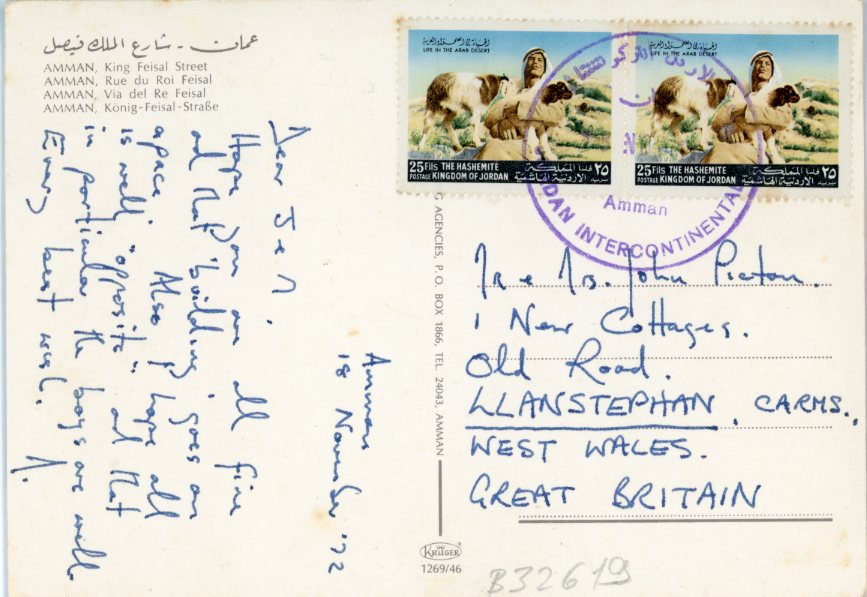 عمان - شارع الملك فيصل
AMMAN, King Feisal Street
AMMAN, Rue du Roi Feisal
AMMAN, Via del Re Feisal
AMMAN, König-Feisal-Straße
Amman
18 November '72
Dear J & M,
Hope you are all fine
and that "building" goes on
apace. Also, I hope all
is well "opposite" and that
in particular the boys are well.
Every best wish.
G AGENCIES, P. O. BOX 1866, TEL 24043, AMMAN
KRÜGER
1269/46
LIFE IN THE ARAB DESERT
25 Fils THE HASHEMITE
POSTAGE KINGDOM OF JORDAN
فلسا المملكة ٢٥
بريد الأردنية الهاشمية
LIFE IN THE ARAB DESERT
25 Fils THE HASHEMITE
POSTAGE KINGDOM OF JORDAN
فلسا المملكة ٢٥
بريد الأردنية الهاشمية
Amman
JORDAN INTERCONTINENTAL
Mr & Mrs. John Picton.
1 New Cottages.
Old Road.
LLANSTEPHAN, CARMS.,
WEST WALES.
GREAT BRITAIN
B32619